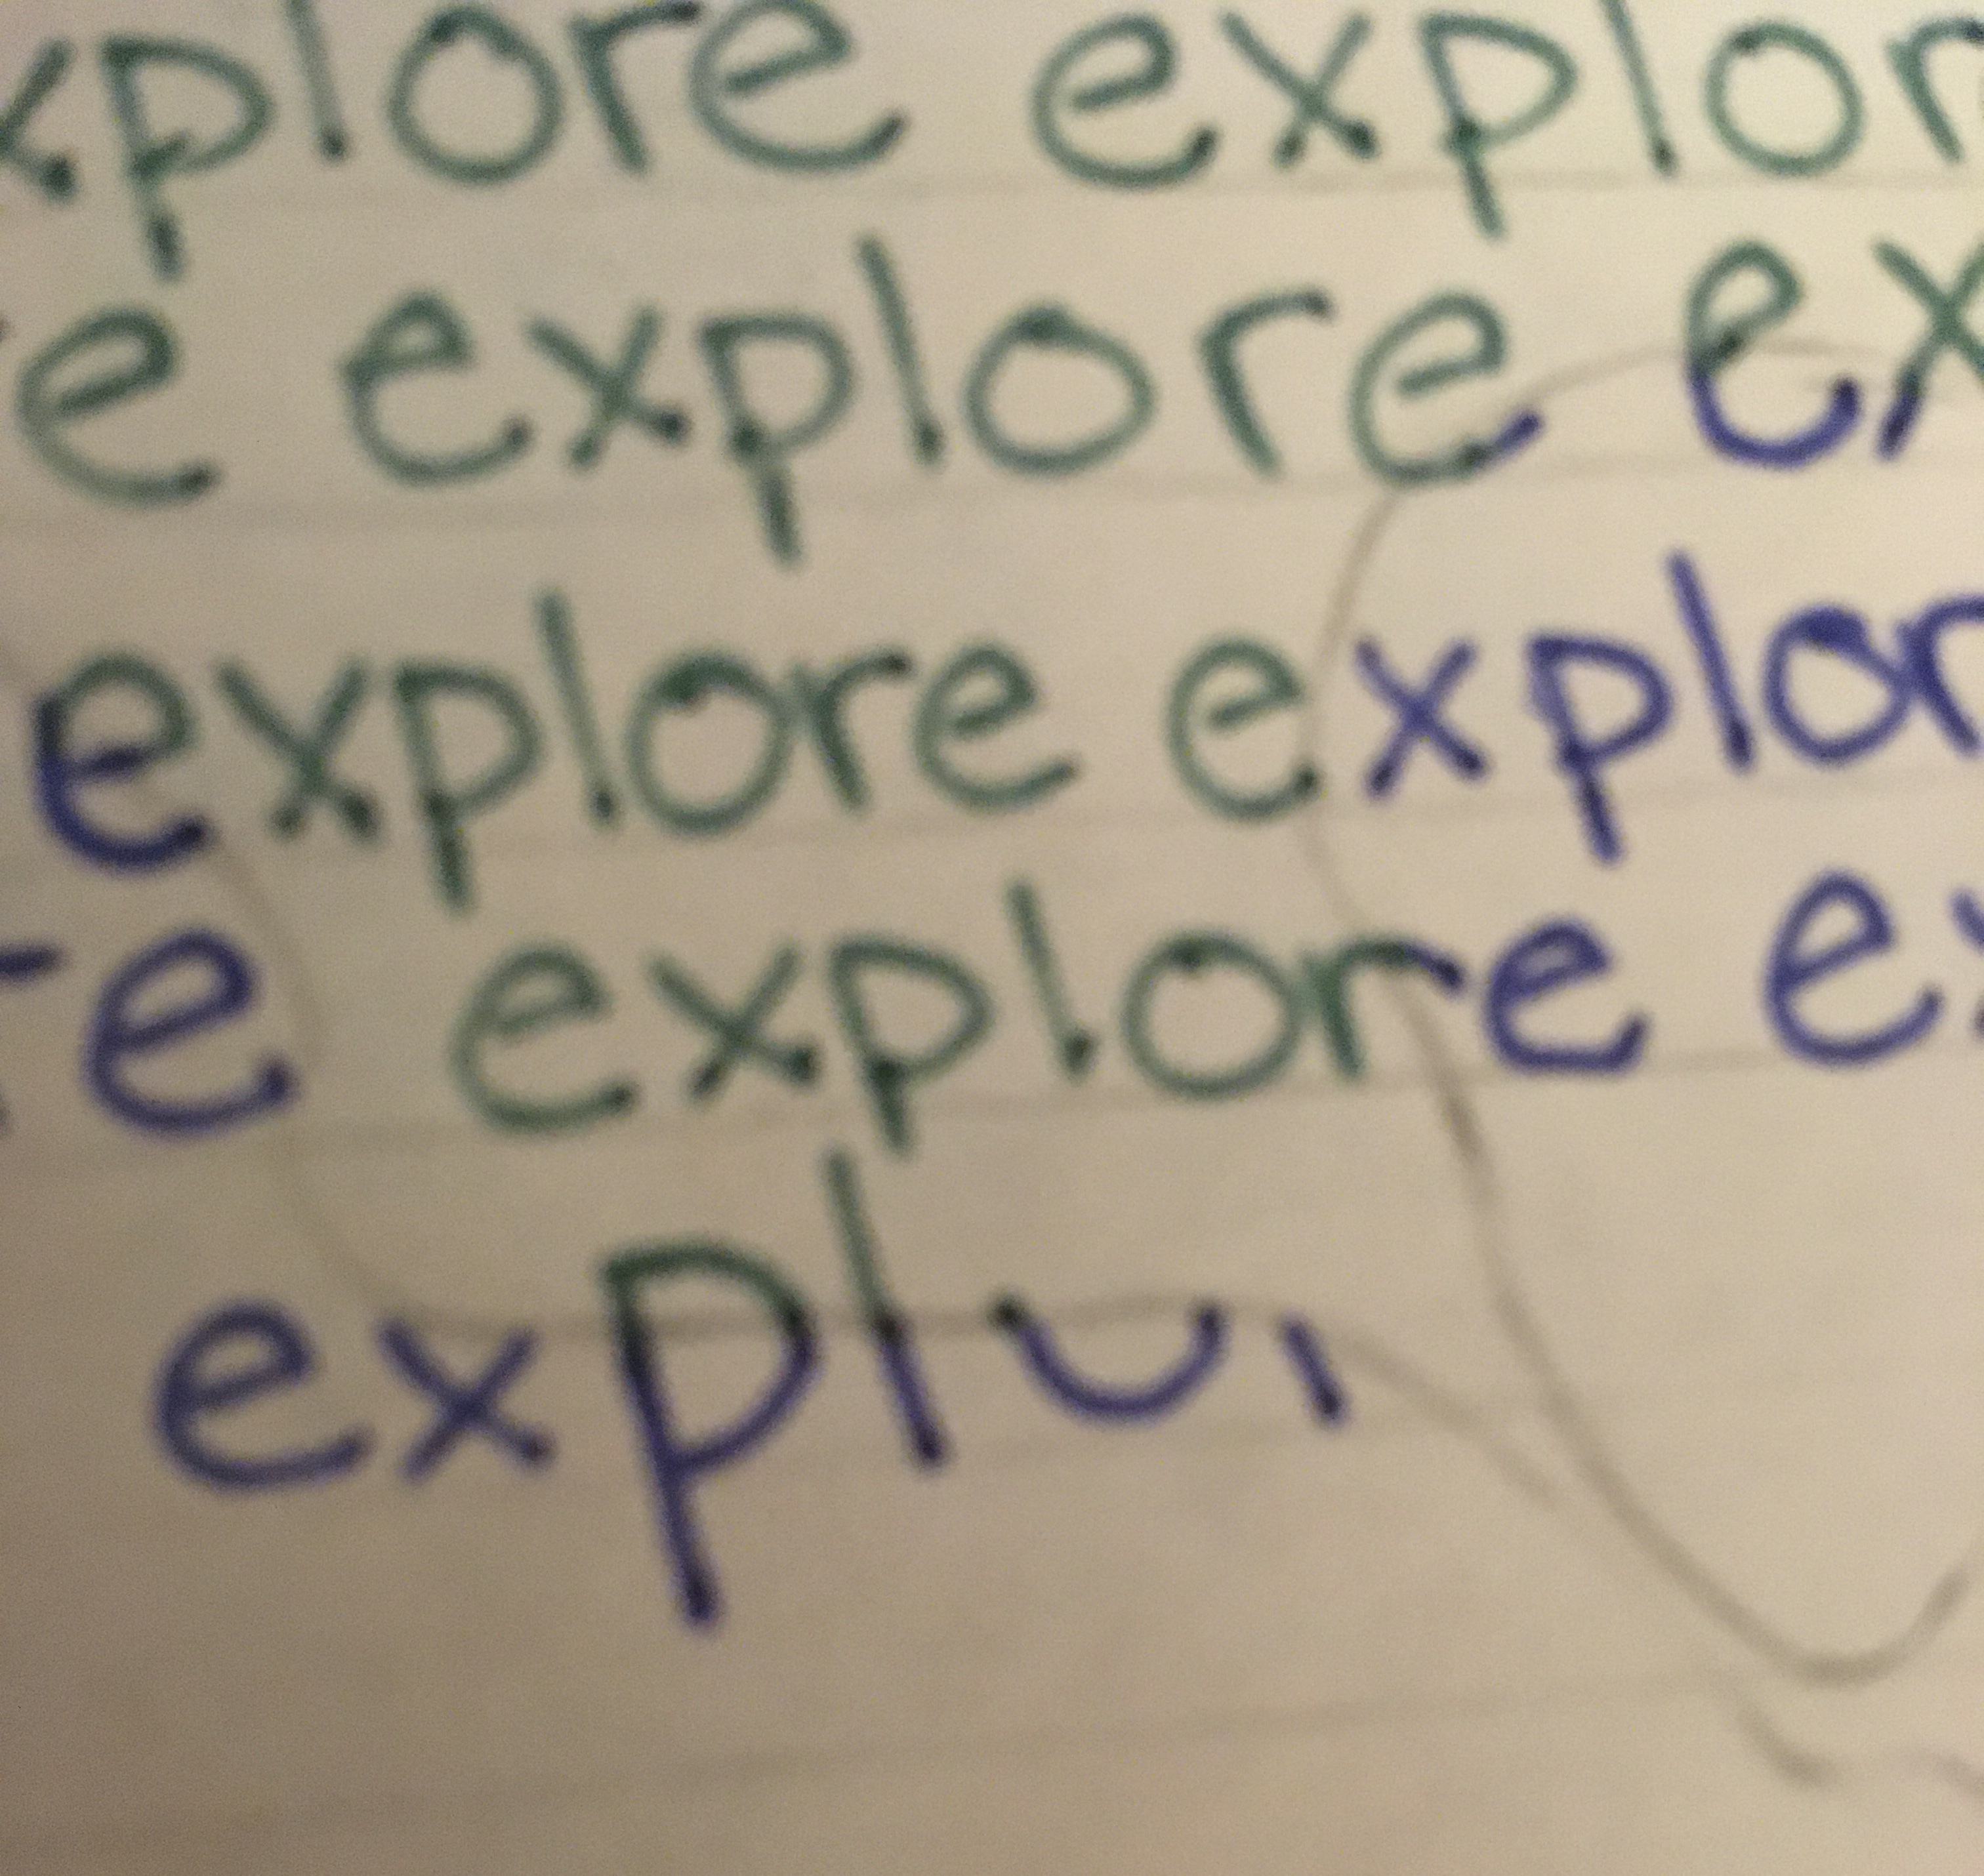 xplore explor
e explore ex
explore explor
re explore ex
explor